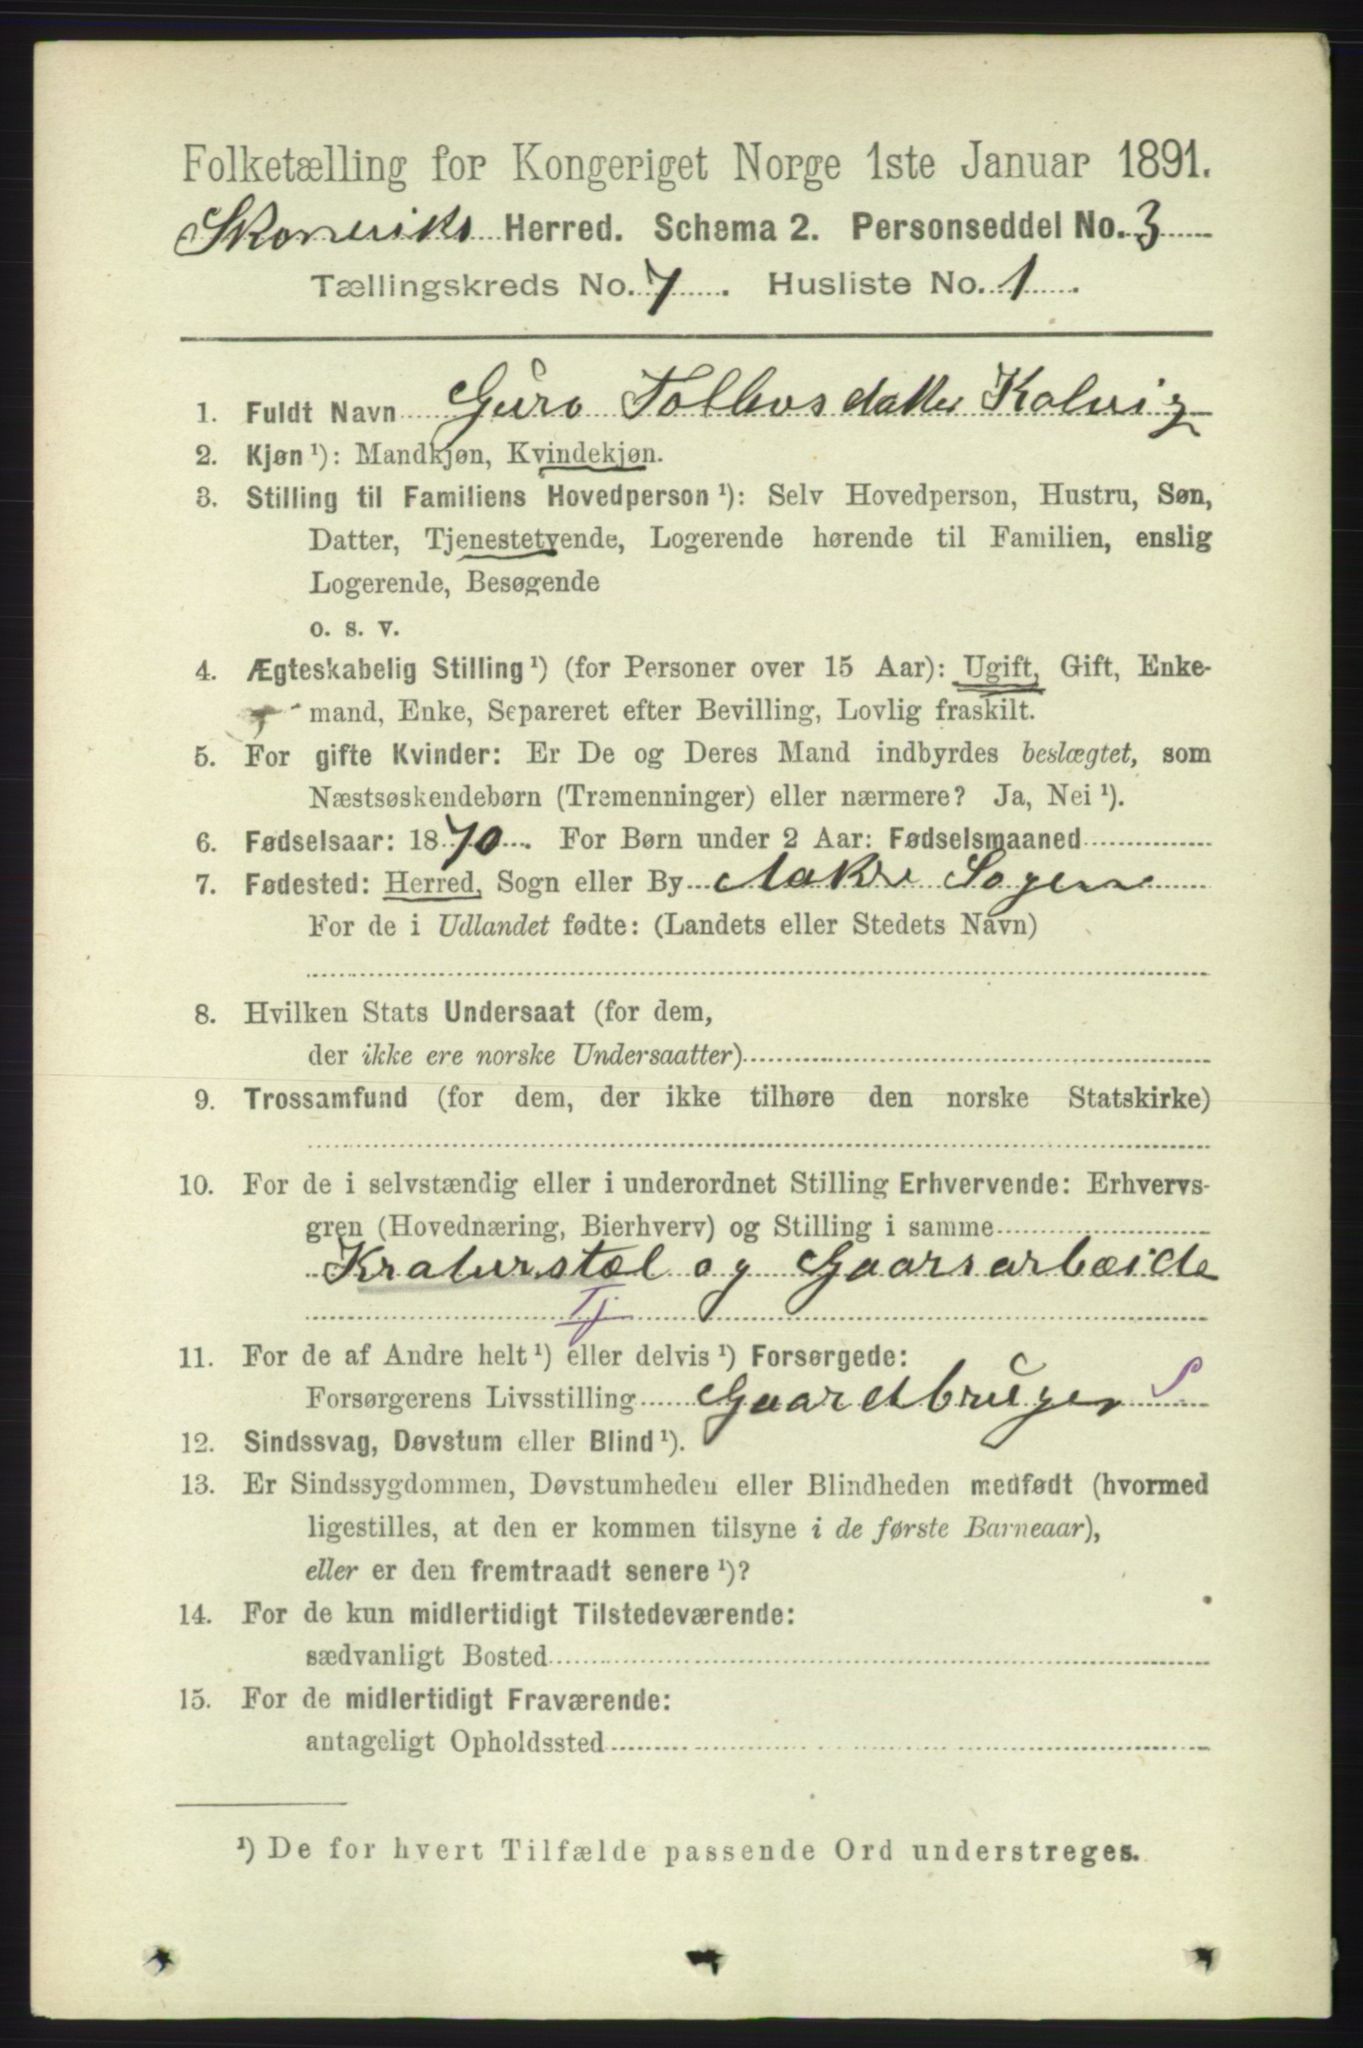 Folketælling for Kongeriget Norge 1ste Januar 1891.
Skoneviks Herred. Schema 2. Personseddel No. 3
Tællingskreds No. 7. Husliste No. 1.
1. Fuldt Navn Guro Tollevsdatter Kalvig
2. Kjøn ¹): Mandkjøn, Kvindekjøn.
3. Stilling til Familiens Hovedperson ¹): Selv Hovedperson, Hustru, Søn,
Datter, Tjenestetyende, Logerende hørende til Familien, enslig
Logerende, Besøgende
o. s. v.
4. Ægteskabelig Stilling ¹) (for Personer over 15 Aar): Ugift, Gift, Enke-
mand, Enke, Separeret efter Bevilling, Lovlig fraskilt.
5. For gifte Kvinder: Er De og Deres Mand indbyrdes beslægtet, som
Næstsøskendebørn (Tremenninger) eller nærmere? Ja, Nei ¹).
6. Fødselsaar: 1870. For Børn under 2 Aar: Fødselsmaaned
7. Fødested: Herred, Sogn eller By Aakre Sogn
For de i Udlandet fødte: (Landets eller Stedets Navn)
8. Hvilken Stats Undersaat (for dem,
der ikke ere norske Undersaatter)
9. Trossamfund (for dem, der ikke tilhøre den norske Statskirke)
10. For de i selvstændig eller i underordnet Stilling Erhvervende: Erhvervs-
gren (Hovednæring, Bierhverv) og Stilling i samme
Kraturstæl og Gaarsarbæide
Tj
11. For de af Andre helt ¹) eller delvis ¹) Forsørgede:
Forsørgerens Livsstilling Gaardbruger S
12. Sindssvag, Døvstum eller Blind ¹).
13. Er Sindssygdommen, Døvstumheden eller Blindheden medfødt (hvormed
ligestilles, at den er kommen tilsyne i de første Barneaar),
eller er den fremtraadt senere ¹)?
14. For de kun midlertidigt Tilstedeværende:
sædvanligt Bosted
15. For de midlertidigt Fraværende:
antageligt Opholdssted
¹) De for hvert Tilfælde passende Ord understreges.